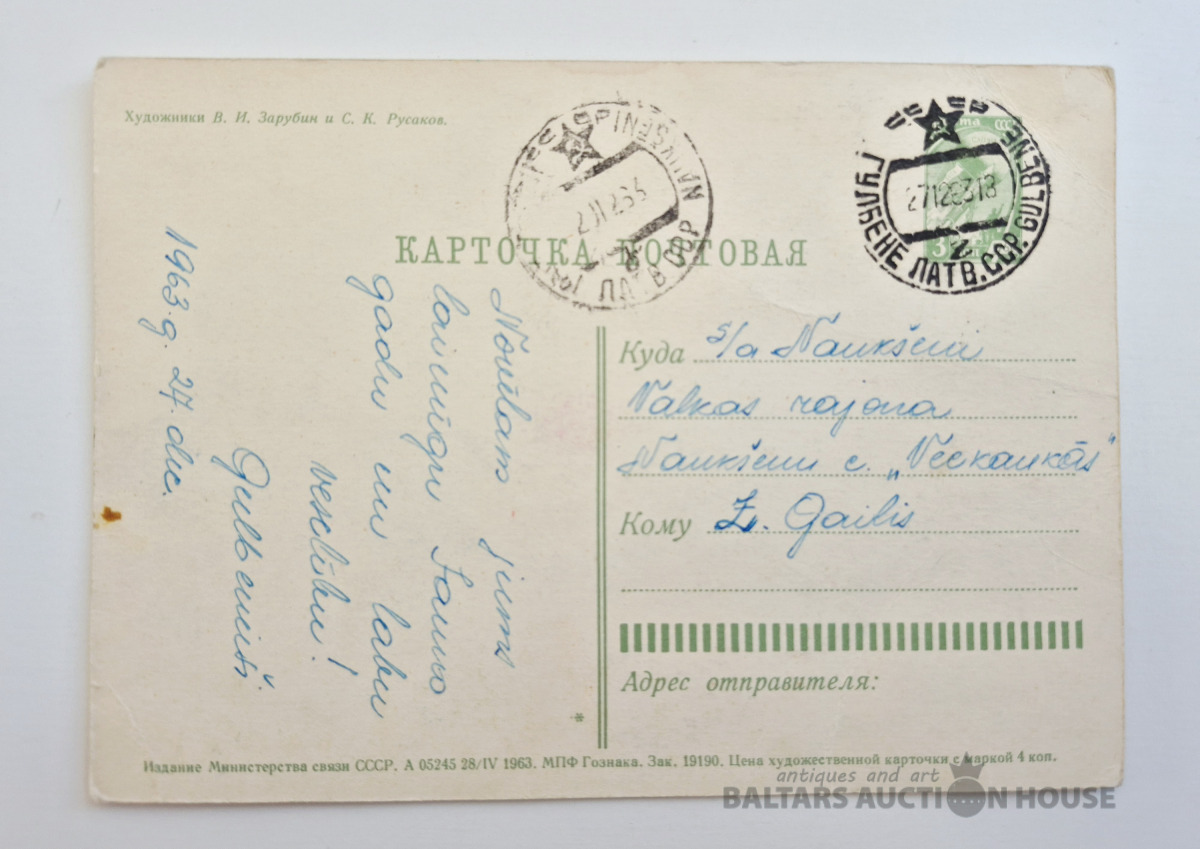 Художники В. И. Зарубин и С. К. Русаков.
почта СССР
ГУЛБЕНЕ ЛАТВ. ССР. GULBENE
27126318
NAUKŠĒNI
ЛАТВ. ССР
КАРТОЧКА ПОЧТОВАЯ
Novēlam jums
laimīgu Jauno
gadu un labu
veselību!
Gulbenieši
1963.g. 27. dec.
Куда s/a Naukšeni
Valkas rajona
Naukšenu c. „Veckaukās"
Кому Z. Gailis
Адрес отправителя:
Издание Министерства связи СССР. А 05245 28/IV 1963. МПФ Гознака. Зак. 19190. Цена художественной карточки с маркой 4 коп.
antiques and art
BALTARS AUCTION HOUSE